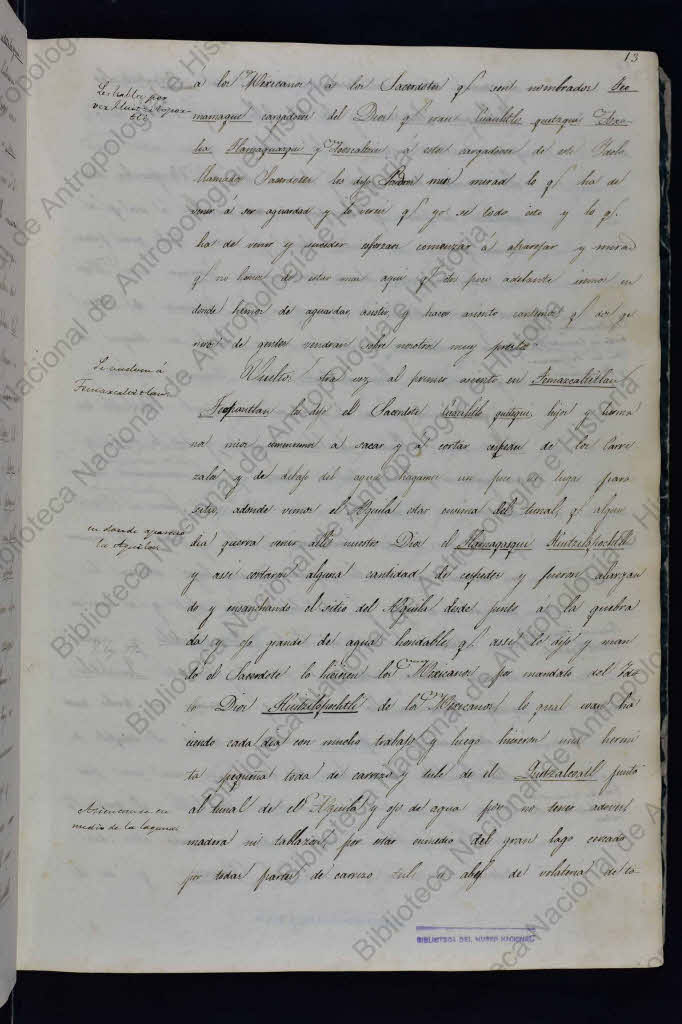 13
Les habla por
vez Huitzilopoz-
tli
a los Mexicanos á los Sacerdotes qª son nombrados Teo
mamaque cargadores del Dios qª eran Cuauhtlo quetzqui
Tlamaguasqui y Ococaltecu á estos cargadores de este Ydolo
llamados Sacerdotes les dijo Padres mios mirad lo qª ha de
venir á ser aguardad y lo vereis qª yo se todo esto y lo qª
ha de venir y suceder esforzaos comenzad á aparejar y mirad
qª no hemos de estar mas aqui qª otro poco adelante iremos en
donde hemos de aguardar, asistir, y hacer asiento cantemos qª dos ge
neros de gentes vendran sobre nosotros muy presto.
Se vuelven á
Temazcaltitlan
Vueltos otra vez al primer asiento en Temazcaltitlan
Teopantlan les dijo el Sacerdote Cuauhtlo quetzqui, hijos y herma
nos mios comencemos á sacar y á cortar cespedes de los Carri
zales y de debajo del agua hagamos un poco de lugar para
sitio, adonde vimos el Aguila estar encima del tunal, qª algun
en donde aparecio
la Aguila
dia querra venir alli nuestro Dios el Tlamagasqui Huitzilopochtli
y assi cortaron alguna cantidad de cespedes y fueron alargan
do y ensanchando el sitio del Aguila desde junto á la quebra
da y ojo grande de agua hondable, qª assi lo dijo y man
dó el Sacerdote lo hiciesen los Mexicanos por mandato del Ydo
lo Dios Huitzilopochtli de los Mexicanos lo qual ivan ha
ciendo cada dia con mucho trabajo y luego hicieron una hermi
ta pequeña toda de carrizo y tule de el Quetzalcoatl junto
Asientanse en
medio de la laguna
al tunal de el Aguila y ojo de agua por no tener adoves
madera ni tablazon, por estar enmedio del gran lago cercado
por todas partes de carrizo tuli y de volateria de to
BIBLIOTECA DEL MUSEO NACIONAL
Biblioteca Nacional de Antropología e Historia